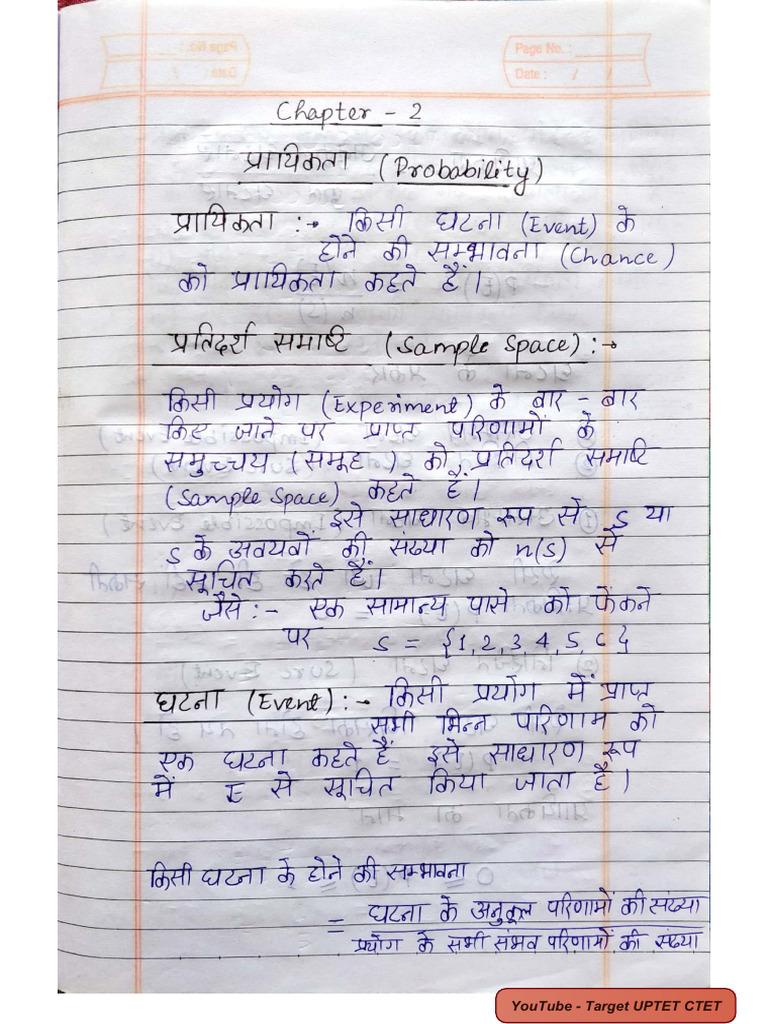 Page No. :
Date :    /    /
Chapter - 2
प्रायिकता (Probability)
प्रायिकता :→ किसी घटना (Event) के
होने की सम्भावना (Chance)
को प्रायिकता कहते हैं।
प्रतिदर्श समाष्टि (Sample Space) :→
किसी प्रयोग (Experiment) के बार - बार
किए जाने पर प्राप्त परिणामों के
समुच्चय (समूह) को प्रतिदर्श समाष्टि
(Sample Space) कहते हैं।
इसे साधारण रूप से S या
S के अवयवों की संख्या को n(S) से
सूचित करते हैं।
जैसे :- एक सामान्य पासे को फेंकने
पर S = {1, 2, 3, 4, 5, 6}
घटना (Event) :→ किसी प्रयोग में प्राप्त
सभी भिन्न परिणाम को
एक घटना कहते हैं इसे साधारण रूप
में E से सूचित किया जाता है।
किसी घटना के होने की सम्भावना
= घटना के अनुकूल परिणामों की संख्या
प्रयोग के सभी संभव परिणामों की संख्या
YouTube - Target UPTET CTET